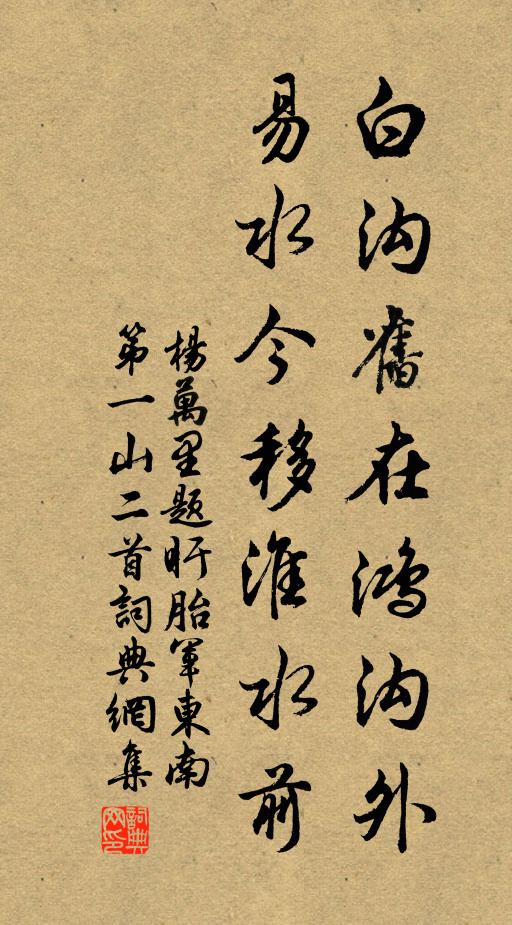 白沟舊在鴻沟外
易水今移淮水前
楊萬里题盱眙軍東南
第一山二首詞典網集
詞典网印